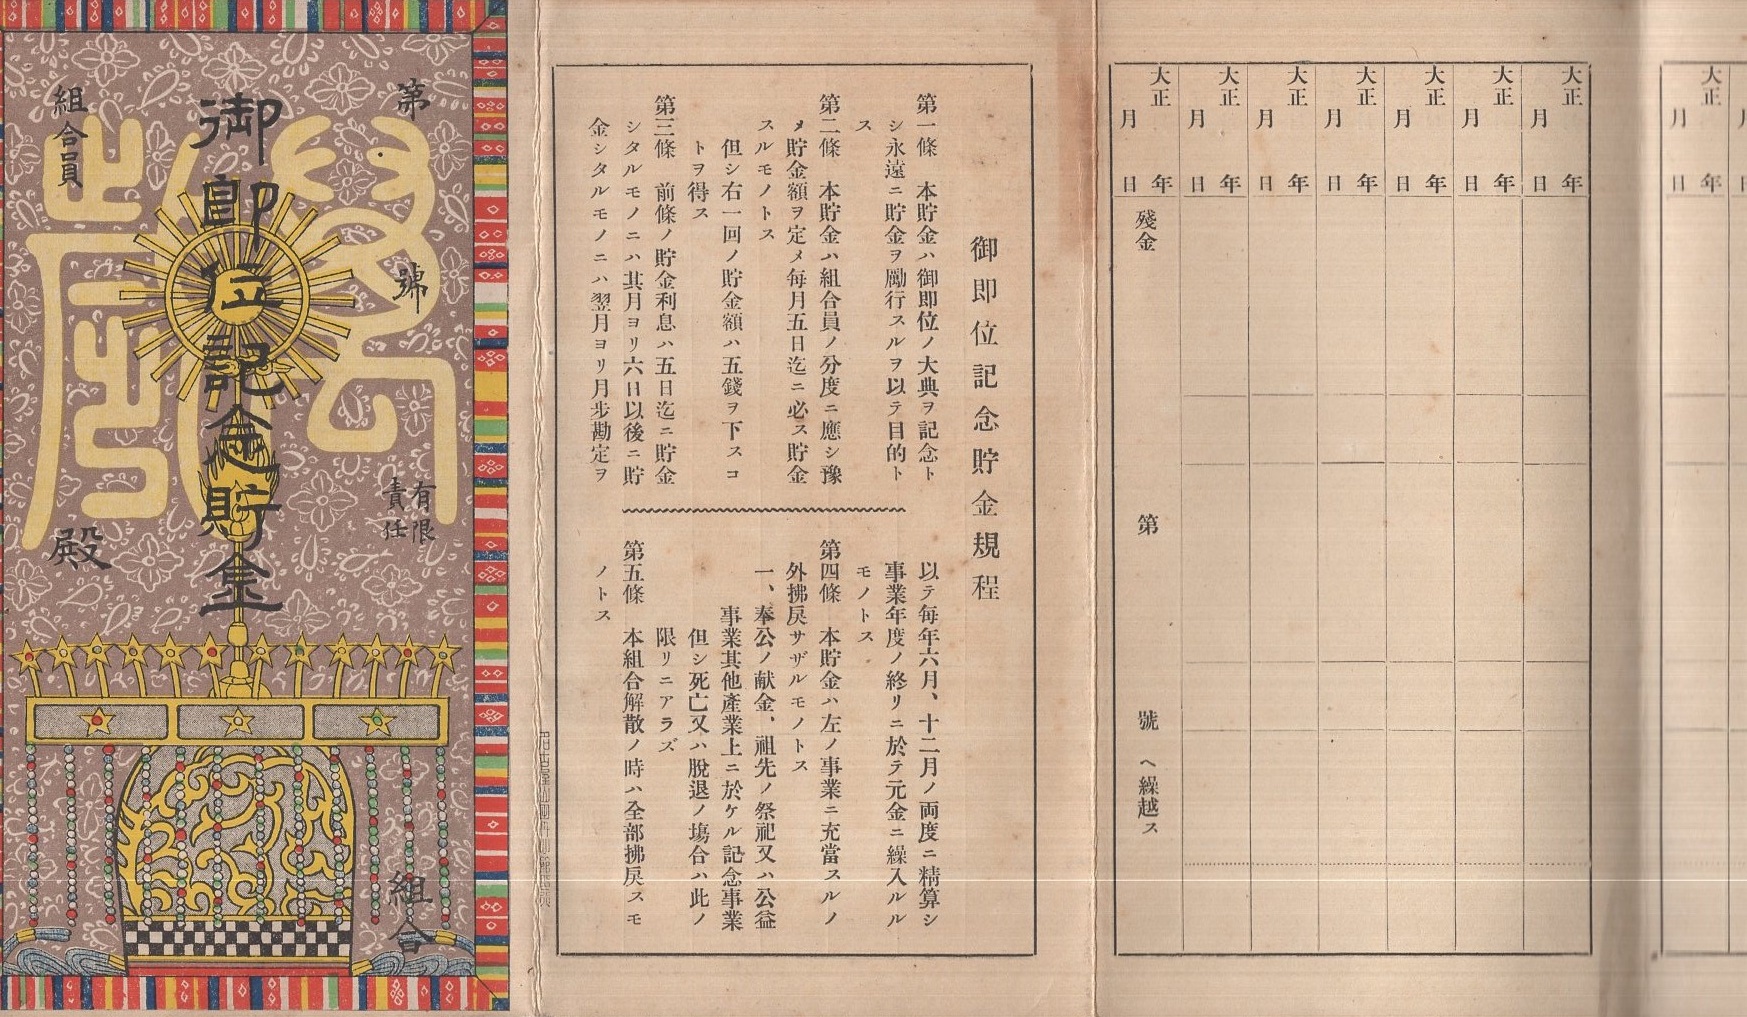 第 號
有限
責任
組合
御即位記念貯金
組合員
殿
萬歳
御即位記念貯金規程
第一條 本貯金ハ御即位ノ大典ヲ記念ト
シ永遠ニ貯金ヲ勵行スルヲ以テ目的ト
ス
第二條 本貯金ハ組合員ノ分度ニ應シ豫
メ貯金額ヲ定メ每月五日迄ニ必ス貯金
スルモノトス
但シ右一回ノ貯金額ハ五錢ヲ下スコ
トヲ得ス
第三條 前條ノ貯金利息ハ五日迄ニ貯金
シタルモノニハ其月ヨリ六日以後ニ貯
金シタルモノニハ翌月ヨリ月步勘定ヲ
以テ每年六月、十二月ノ両度ニ精算シ
事業年度ノ終リニ於テ元金ニ繰入ルル
モノトス
第四條 本貯金ハ左ノ事業ニ充當スルノ
外拂戻サザルモノトス
一、奉公ノ献金、祖先ノ祭祀又ハ公益
事業其他產業上ニ於ケル記念事業
但シ死亡又ハ脫退ノ塲合ハ此ノ
限リニアラズ
第五條 本組合解散ノ時ハ全部拂戻スモ
ノトス
大正 年 月 日
大正 年 月 日
大正 年 月 日
大正 年 月 日
大正 年 月 日
大正 年 月 日
大正 年 月 日
殘金 第 號ヘ繰越ス
大正 年 月 日